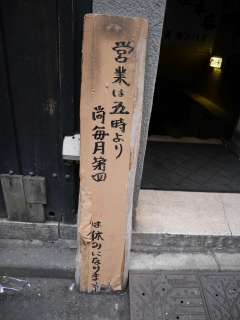 営業は五時より
尚毎月第四
は休みになります